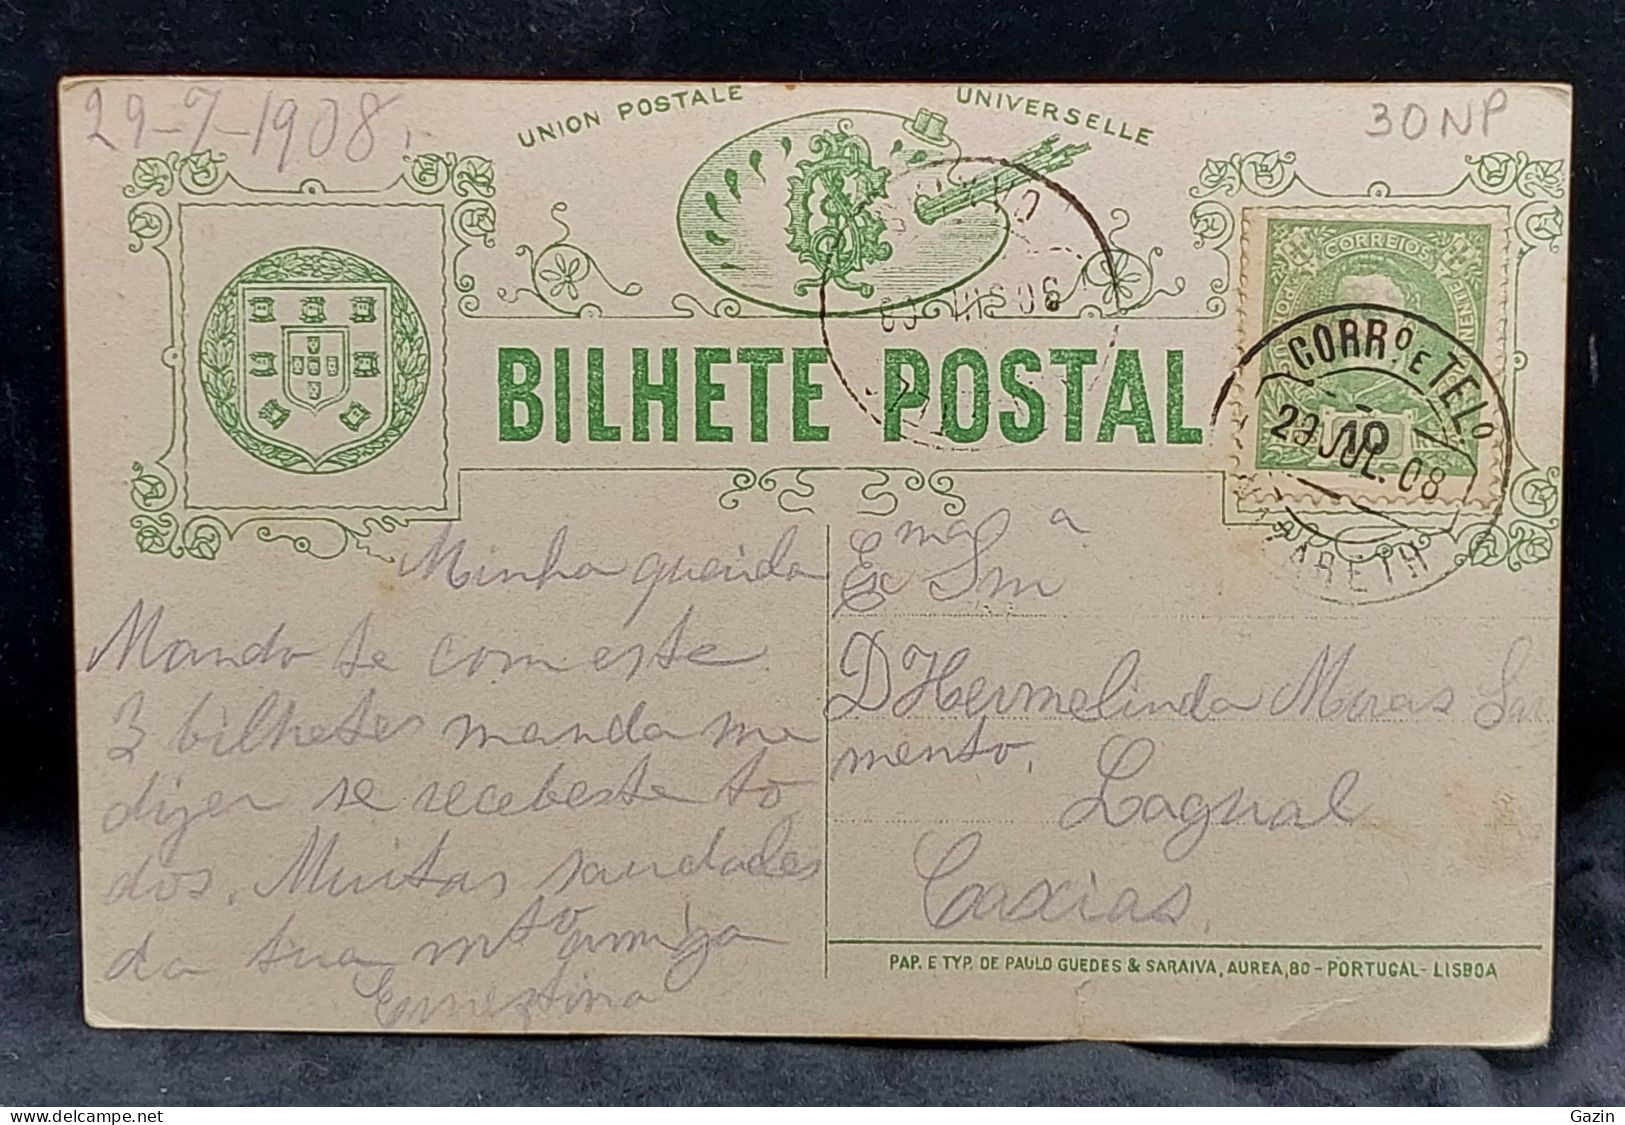 29-7-1908.
30NP
UNION POSTALE UNIVERSELLE
CORREIOS
BILHETE POSTAL
CORR.º E TEL.º
29 JUL. 08
10
Minha querida
Mando te com este
3 bilhetes manda me
dizer se recebeste to
dos. Muitas saudades
da tua mto amiga
Ernestina
Exma Snra
D Hermelinda Moraes Sar
mento.
Lagoal
Caxias.
PAP. E TYP. DE PAULO GUEDES & SARAIVA, AUREA, 80 - PORTUGAL - LISBOA
Gazin